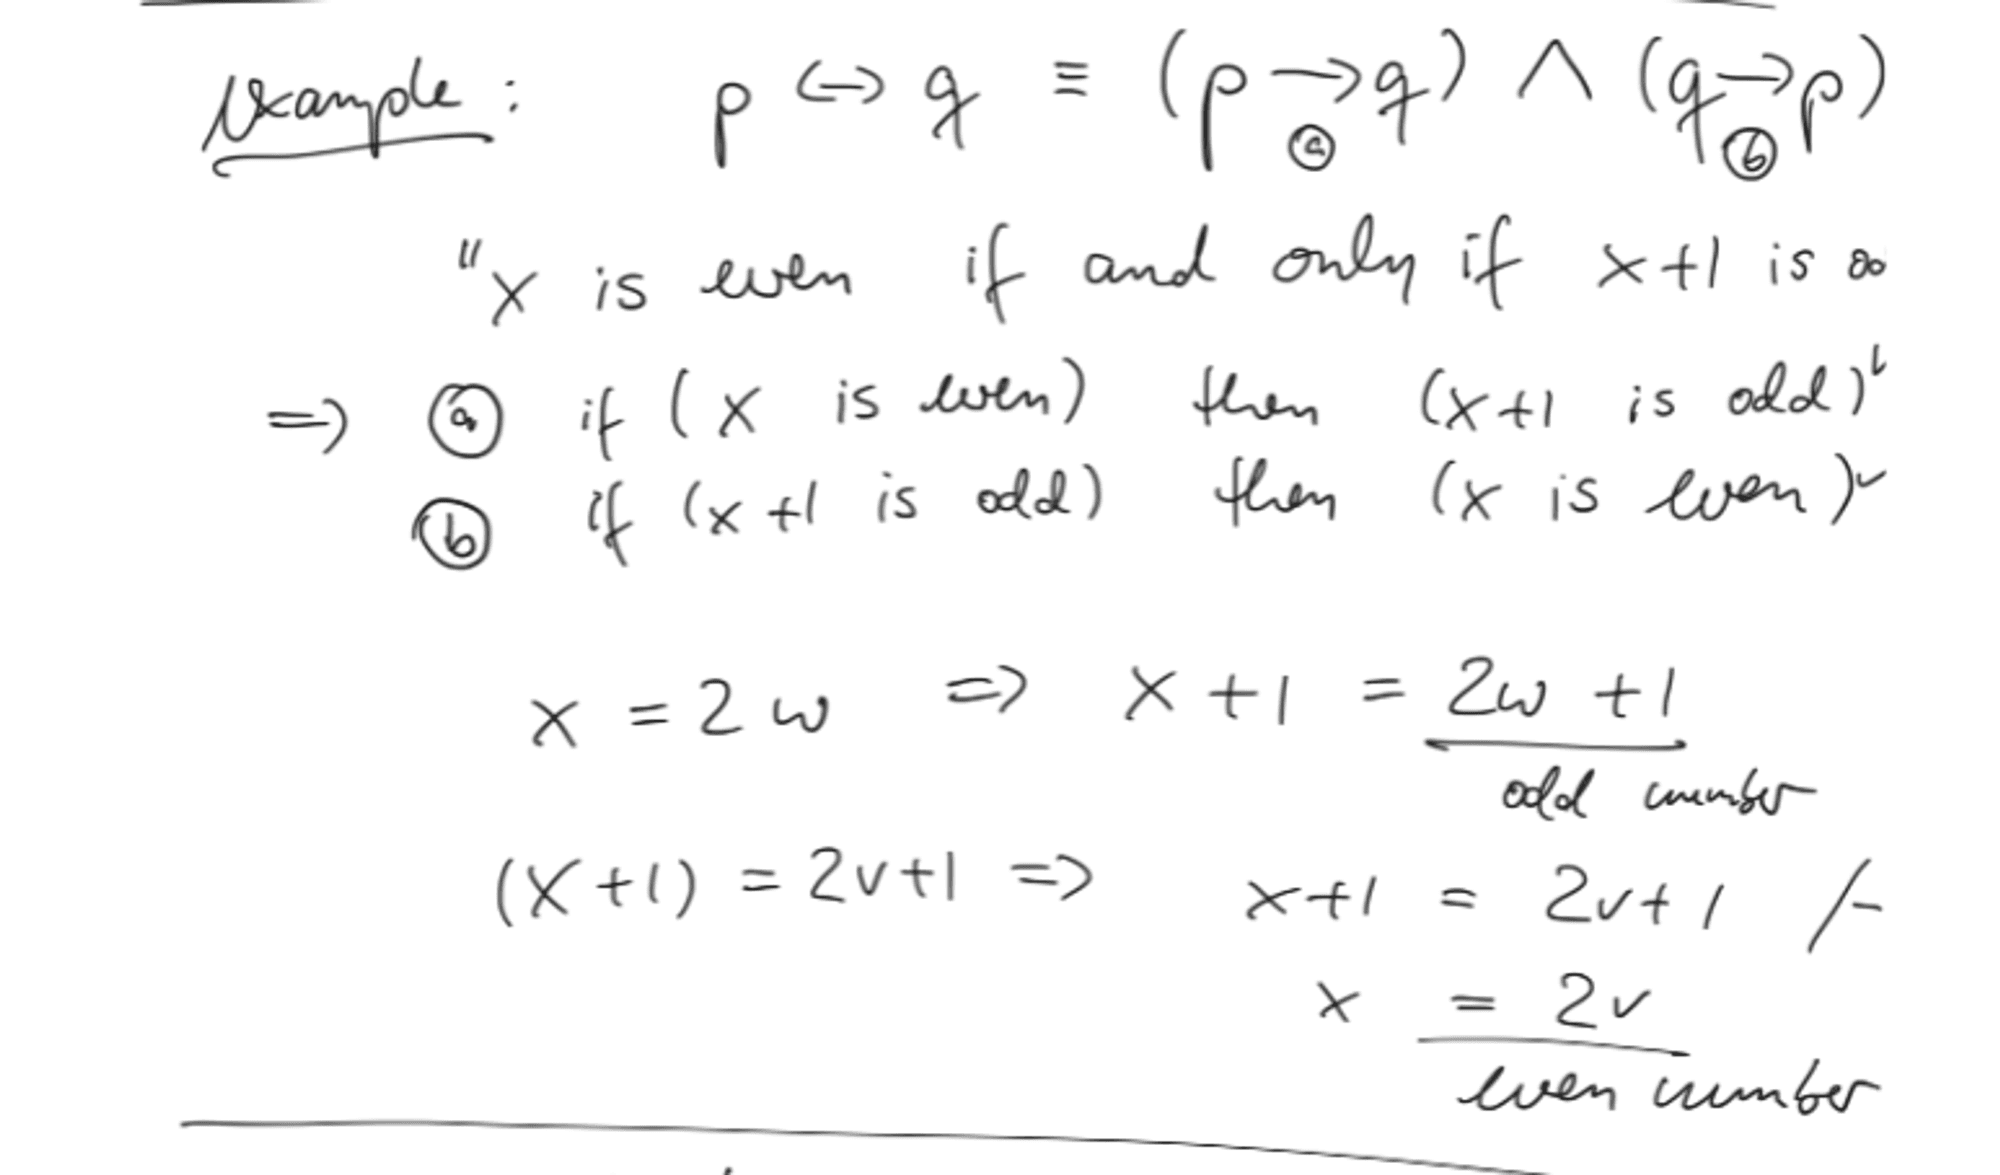 Example: p ↔ q ≡ (p → q) ∧ (q → p)
ⓐ ⓑ
"x is even if and only if x+1 is
⇒ ⓐ if (x is even) then (x+1 is odd)
ⓑ if (x+1 is odd) then (x is even) ✓
x = 2w ⇒ x+1 = 2w+1
odd number
(x+1) = 2v+1 ⇒ x+1 = 2v+1 /-
x = 2v
even number